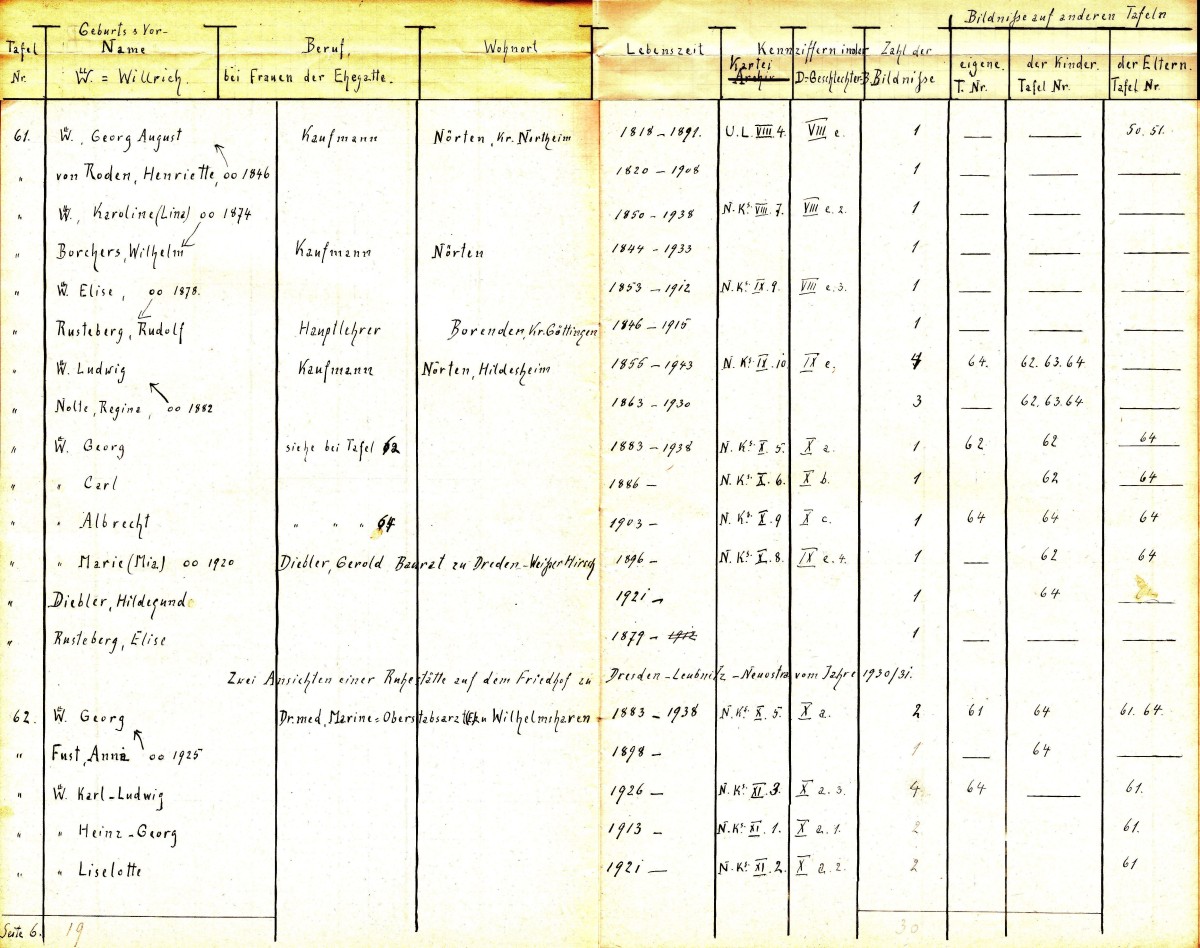 Bildniße auf anderen Tafeln
Tafel Nr. Geburts & Vor-Name W. = Willrich. Beruf, bei Frauen der Ehegatte. Wohnort Lebenszeit Kennziffern in der Kartei Archiv D=Geschlechter-B. Zahl der Bildniße eigene. T. Nr. der Kinder. Tafel Nr. der Eltern. Tafel Nr.
61. W., Georg August Kaufmann Nörten, Kr. Northeim 1818 – 1891. U.L. VIII. 4. VIII e. 1 — — 50. 51.
" von Roden, Henriette, oo 1846 1820 – 1908 1 — — —
" W., Karoline (Lina) oo 1874 1850 – 1938 N.Ks. VIII. 7. VIII e. 2. 1 — — —
" Borchers, Wilhelm Kaufmann Nörten 1844 – 1933 1 — — —
" W. Elise, oo 1878. 1853 – 1912 N.Ks. IX. 9. VIII e. 3. 1 — — —
" Rusteberg, Rudolf Hauptlehrer Borenden, Kr. Göttingen 1846 – 1915 1 — — —
" W. Ludwig Kaufmann Nörten, Hildesheim 1855 – 1943 N.Ks. IX. 10. IX e. 4 64. 62. 63. 64 —
" Nolte, Regina, oo 1882 1863 – 1930 3 — 62. 63. 64 —
" W. Georg siehe bei Tafel 62 1883 – 1938 N.Ks. X. 5. X a. 1 62 62 64
" " Carl 1886 – N.Ks. X. 6. X b. 1 62 64
" " Albrecht " " " 64 1903 – N.Ks. X. 9 X c. 1 64 64 64
" " Marie (Mia) oo 1920 Diebler, Gerold Baurat zu Dreden–Weißer Hirsch 1896 – N.Ks. X. 8. IX e. 4. 1 — 62 64
" Diebler, Hildegund 1921 – 1 64 —
" Rusteberg, Elise 1879 – 1912 1 — — —
Zwei Ansichten einer Ruhestätte auf dem Friedhof zu Dresden–Leubnitz–Neuostra vom Jahre 1930/31.
62. W. Georg Dr. med, Marine=Oberstabsarzt zu Wilhelmshaven 1883 – 1938 N.Ks. X. 5. X a. 2 61 64 61. 64.
" Fust, Anna oo 1925 1898 – 1 — 64 —
" W. Karl–Ludwig 1926 – N.Ks. XI. 3. X a. 3. 4 64 — 61.
" " Heinz–Georg 1913 – N.Ks. XI. 1. X a. 1. 2 61.
" " Liselotte 1921 — N.Ks. XI. 2. X a. 2. 2 61
Seite 6. 19 30